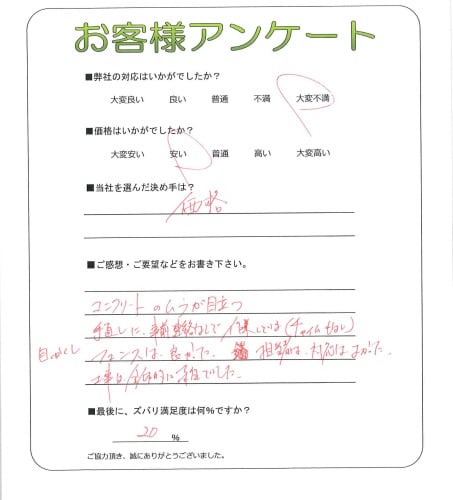 お客様アンケート
■弊社の対応はいかがでしたか？
大変良い 良い 普通 不満 大変不満
■価格はいかがでしたか？
大変安い 安い 普通 高い 大変高い
■当社を選んだ決め手は？
価格
■ご感想・ご要望などをお書き下さい。
コンクリートのムラが目立つ
手直しに、事前連絡なしで 作業している(チャイムなし)
目かくし
フェンスは、良かった。 担当者は、対応はよかった。
工事は全体的に でした。
■最後に、ズバリ満足度は何％ですか？
20 ％
ご協力頂き、誠にありがとうございました。